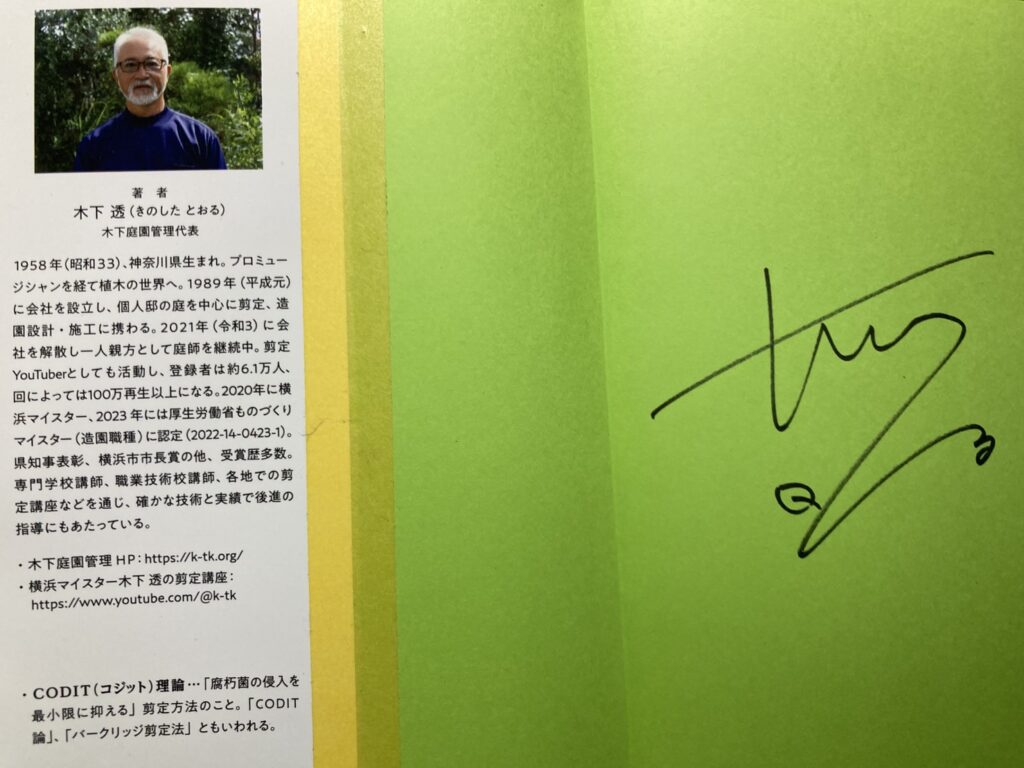 著 者
木下 透(きのした とおる)
木下庭園管理代表
1958年(昭和33)、神奈川県生まれ。プロミュー
ジシャンを経て植木の世界へ。1989年(平成元)
に会社を設立し、個人邸の庭を中心に剪定、造
園設計・施工に携わる。2021年(令和3)に会
社を解散し一人親方として庭師を継続中。剪定
YouTuberとしても活動し、登録者は約6.1万人、
回によっては100万再生以上になる。2020年に横
浜マイスター、2023年には厚生労働省ものづくり
マイスター(造園職種)に認定(2022-14-0423-1)。
県知事表彰、横浜市市長賞の他、受賞歴多数。
専門学校講師、職業技術校講師、各地での剪
定講座などを通じ、確かな技術と実績で後進の
指導にもあたっている。
・木下庭園管理 HP:https://k-tk.org/
・横浜マイスター木下 透の剪定講座:
https://www.youtube.com/@k-tk
・CODIT(コジット)理論…「腐朽菌の侵入を
最小限に抑える」剪定方法のこと。「CODIT
論」、「バークリッジ剪定法」ともいわれる。